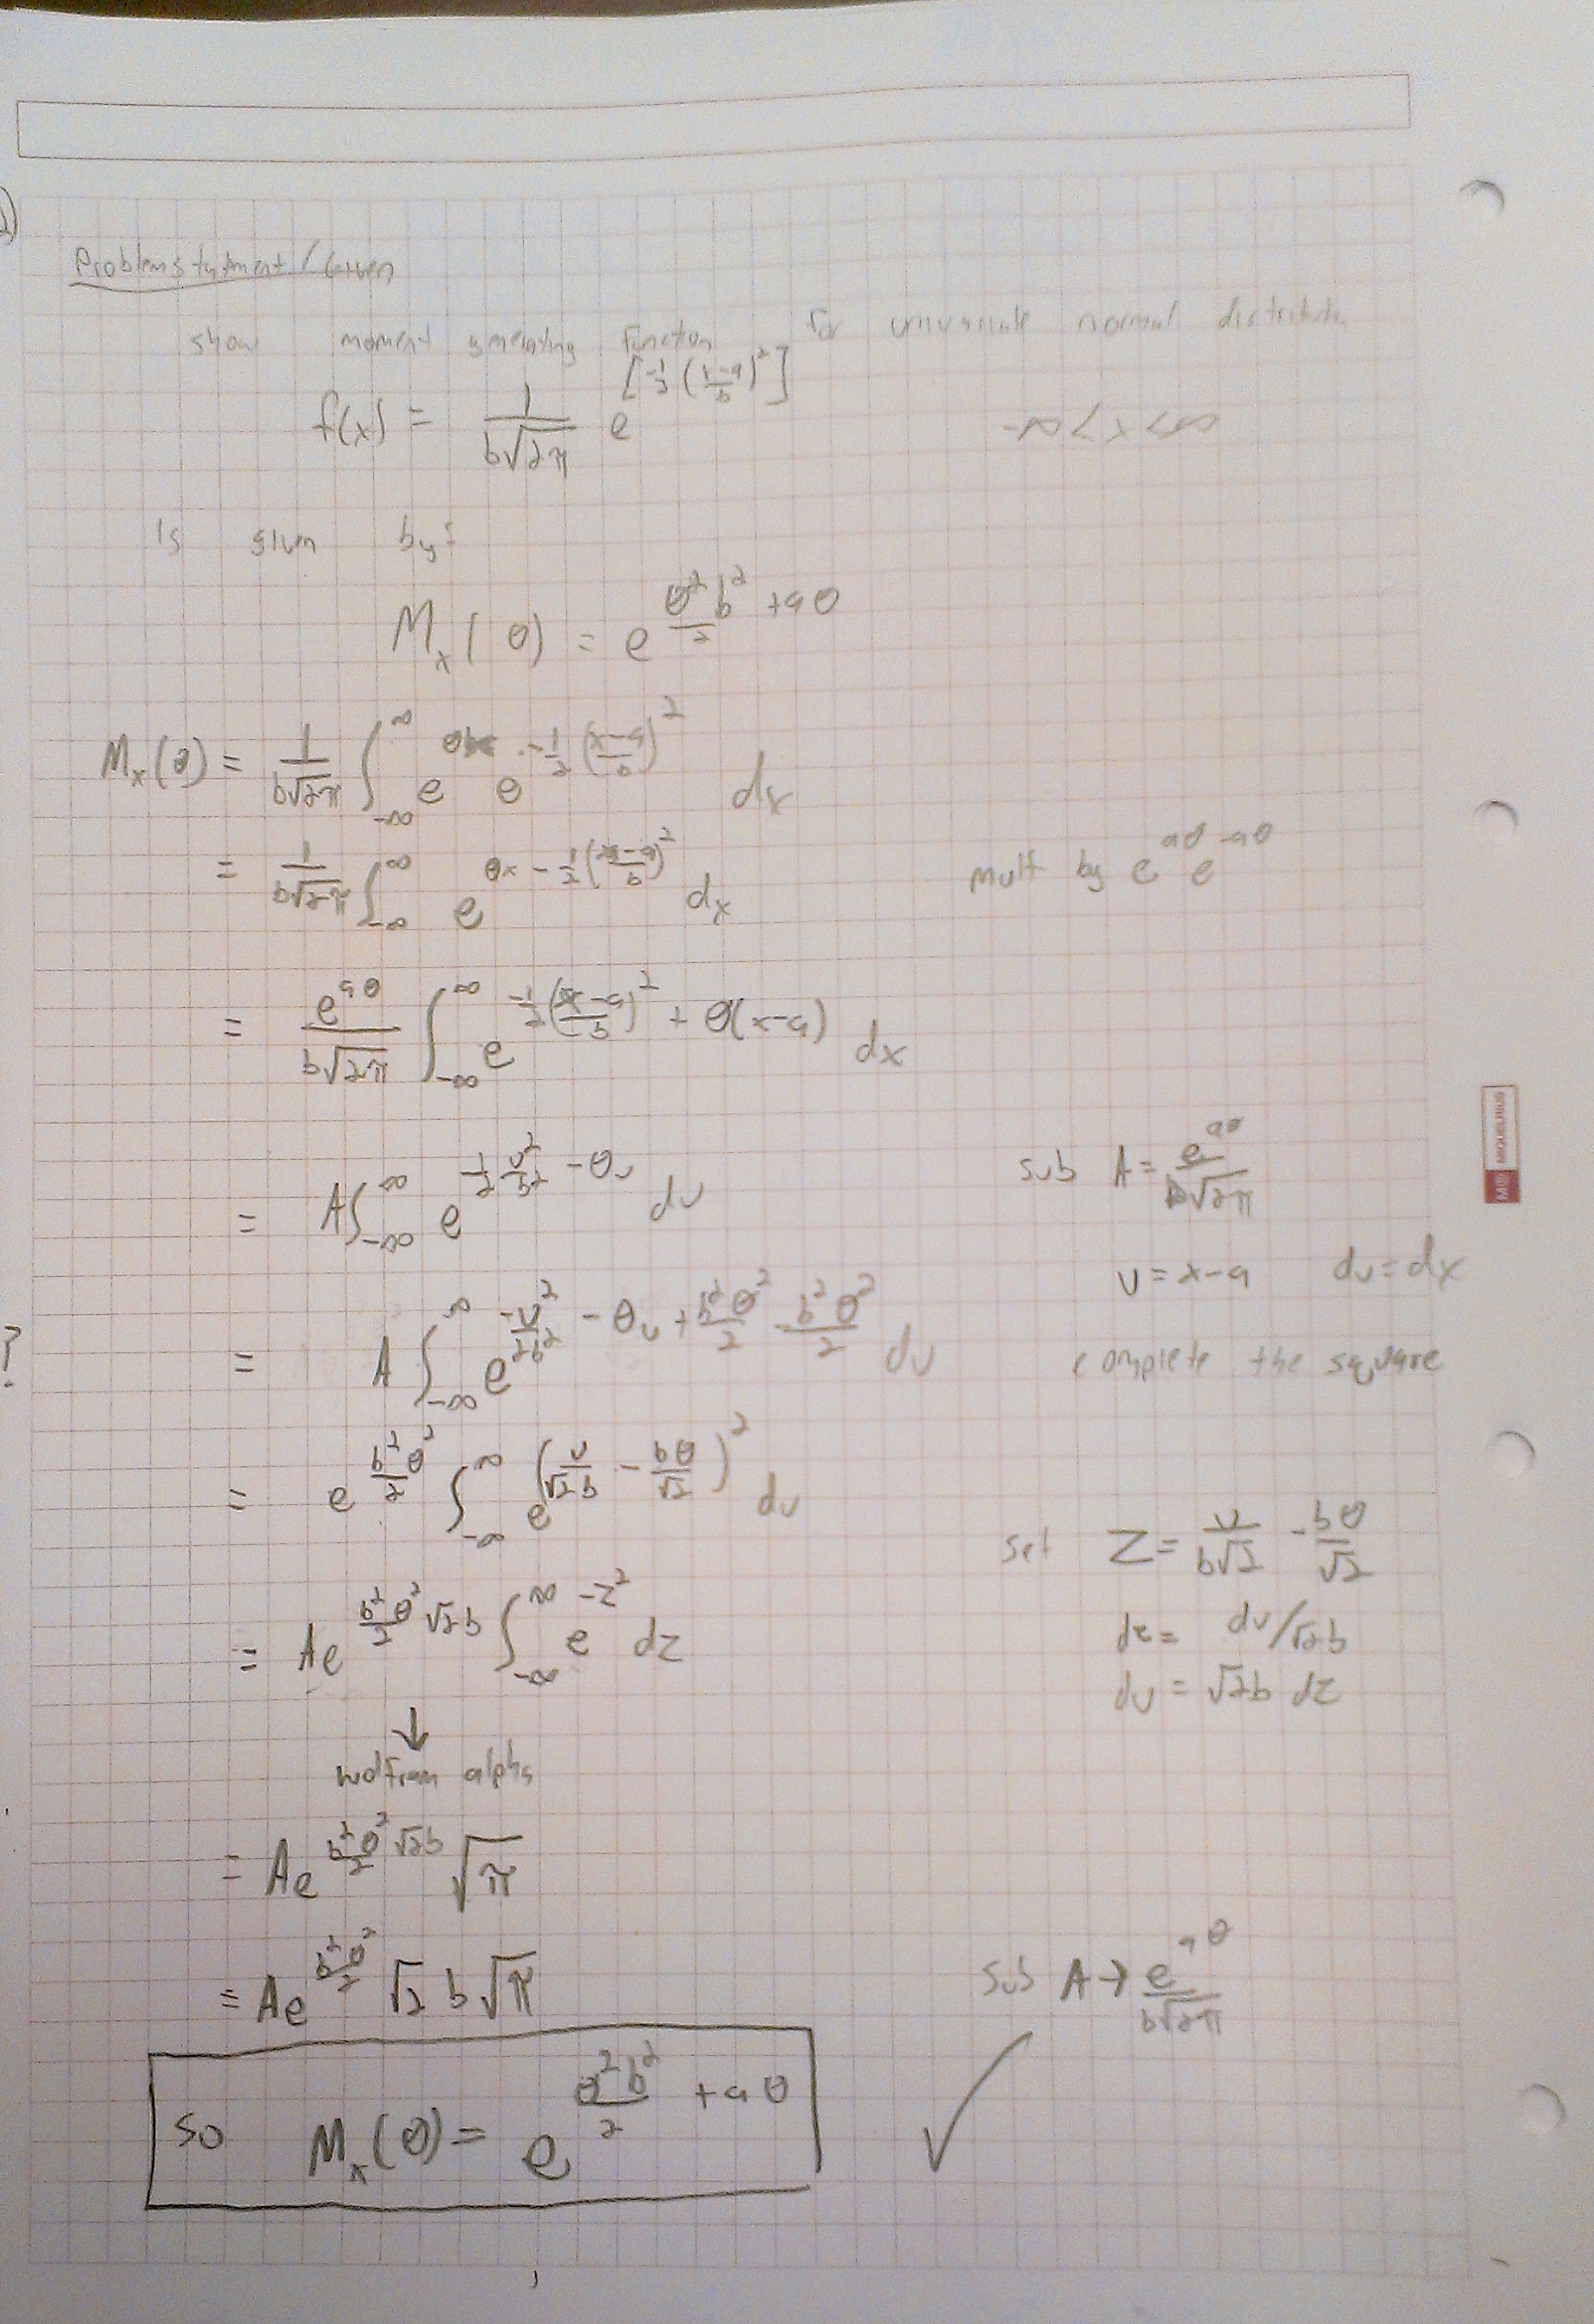 Problem statment / Given
show moment generating function for univariate normal distribution
f(x) = 1/(b√2π) e^[-1/2 ((x-a)/b)^2] -∞ < x < ∞
Is given by:
M_x(θ) = e^(θ^2 b^2/2 + aθ)
M_x(θ) = 1/(b√2π) ∫_-∞^∞ e^(θx) e^(-1/2 ((x-a)/b)^2) dx
= 1/(b√2π) ∫_-∞^∞ e^(θx - 1/2 ((x-a)/b)^2) dx mult by e^(aθ) e^(-aθ)
= e^(aθ)/(b√2π) ∫_-∞^∞ e^(-1/2 ((x-a)/b)^2 + θ(x-a)) dx
= A ∫_-∞^∞ e^(-1/2 u^2/b^2 - θu) du sub A = e^(aθ)/(b√2π)
u = x-a du = dx
? = A ∫_-∞^∞ e^(-u^2/2b^2 - θu + b^2θ^2/2 - b^2θ^2/2) du complete the square
= e^(b^2θ^2/2) ∫_-∞^∞ e^(u/(√2b) - bθ/√2)^2 du
set Z = u/(b√2) - bθ/√2
= Ae^(b^2θ^2/2 √2b) ∫_-∞^∞ e^(-z^2) dz dz = du/√2b
du = √2b dz
↓
wolfram alpha
= Ae^(b^2θ^2/2 √2b) √π
= Ae^(b^2θ^2/2) √2 b√π sub A → e^(aθ)/(b√2π)
so M_x(θ) = e^(θ^2 b^2/2 + aθ) ✓
MIQUELRIUS